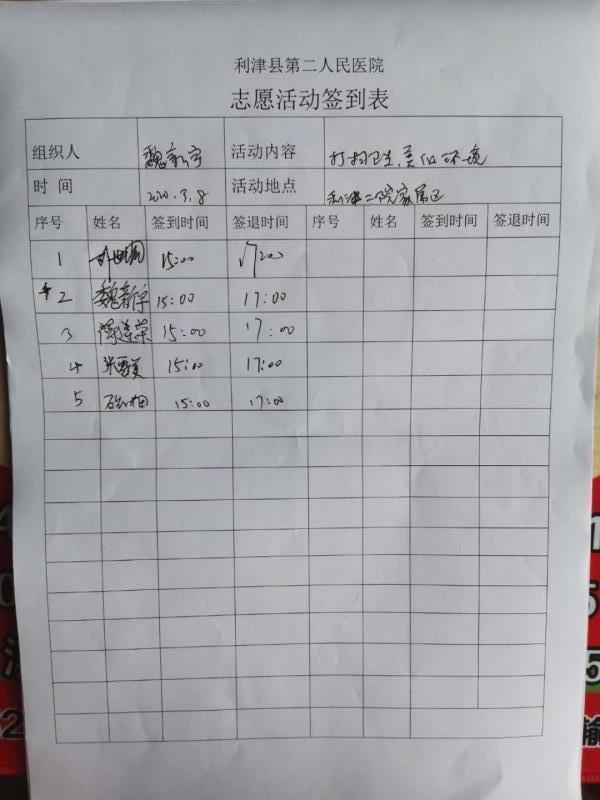 利津县第二人民医院
志愿活动签到表
组织人 魏新宇 活动内容 打扫卫生,美化环境
时 间 2020.3.8 活动地点 利津二院家属区
序号 姓名 签到时间 签退时间 序号 姓名 签到时间 签退时间
1 15:00 17:00
2 魏新宇 15:00 17:00
3 15:00 17:00
4 15:00 17:00
5 15:00 17:00